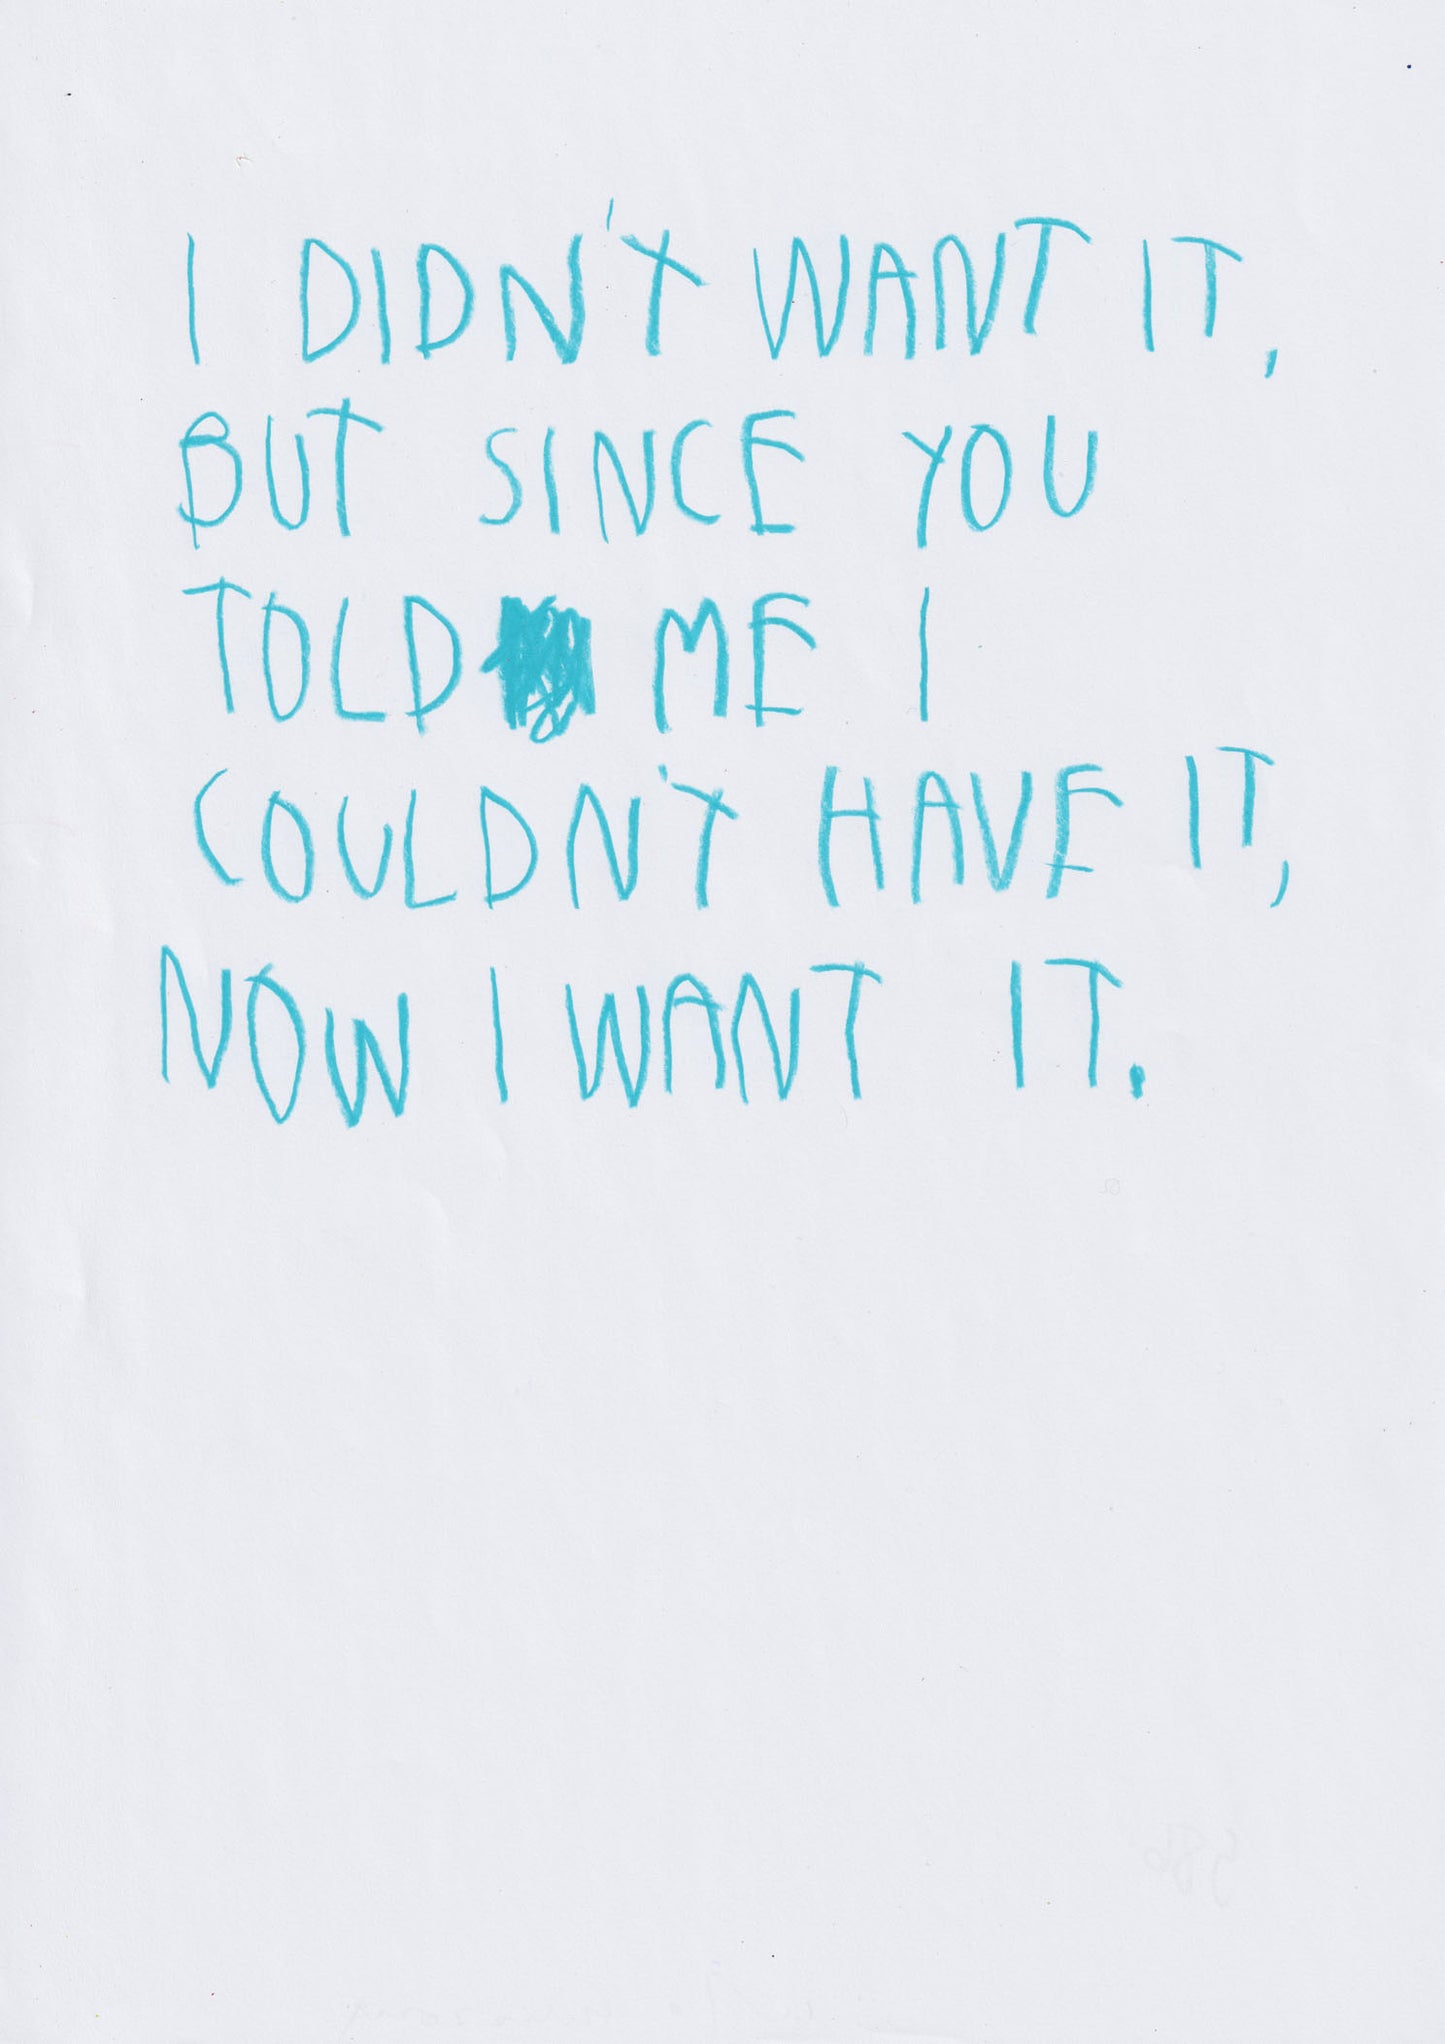 I DIDN'T WANT IT,
BUT SINCE YOU
TOLD ME I
COULDN'T HAVE IT,
NOW I WANT IT.